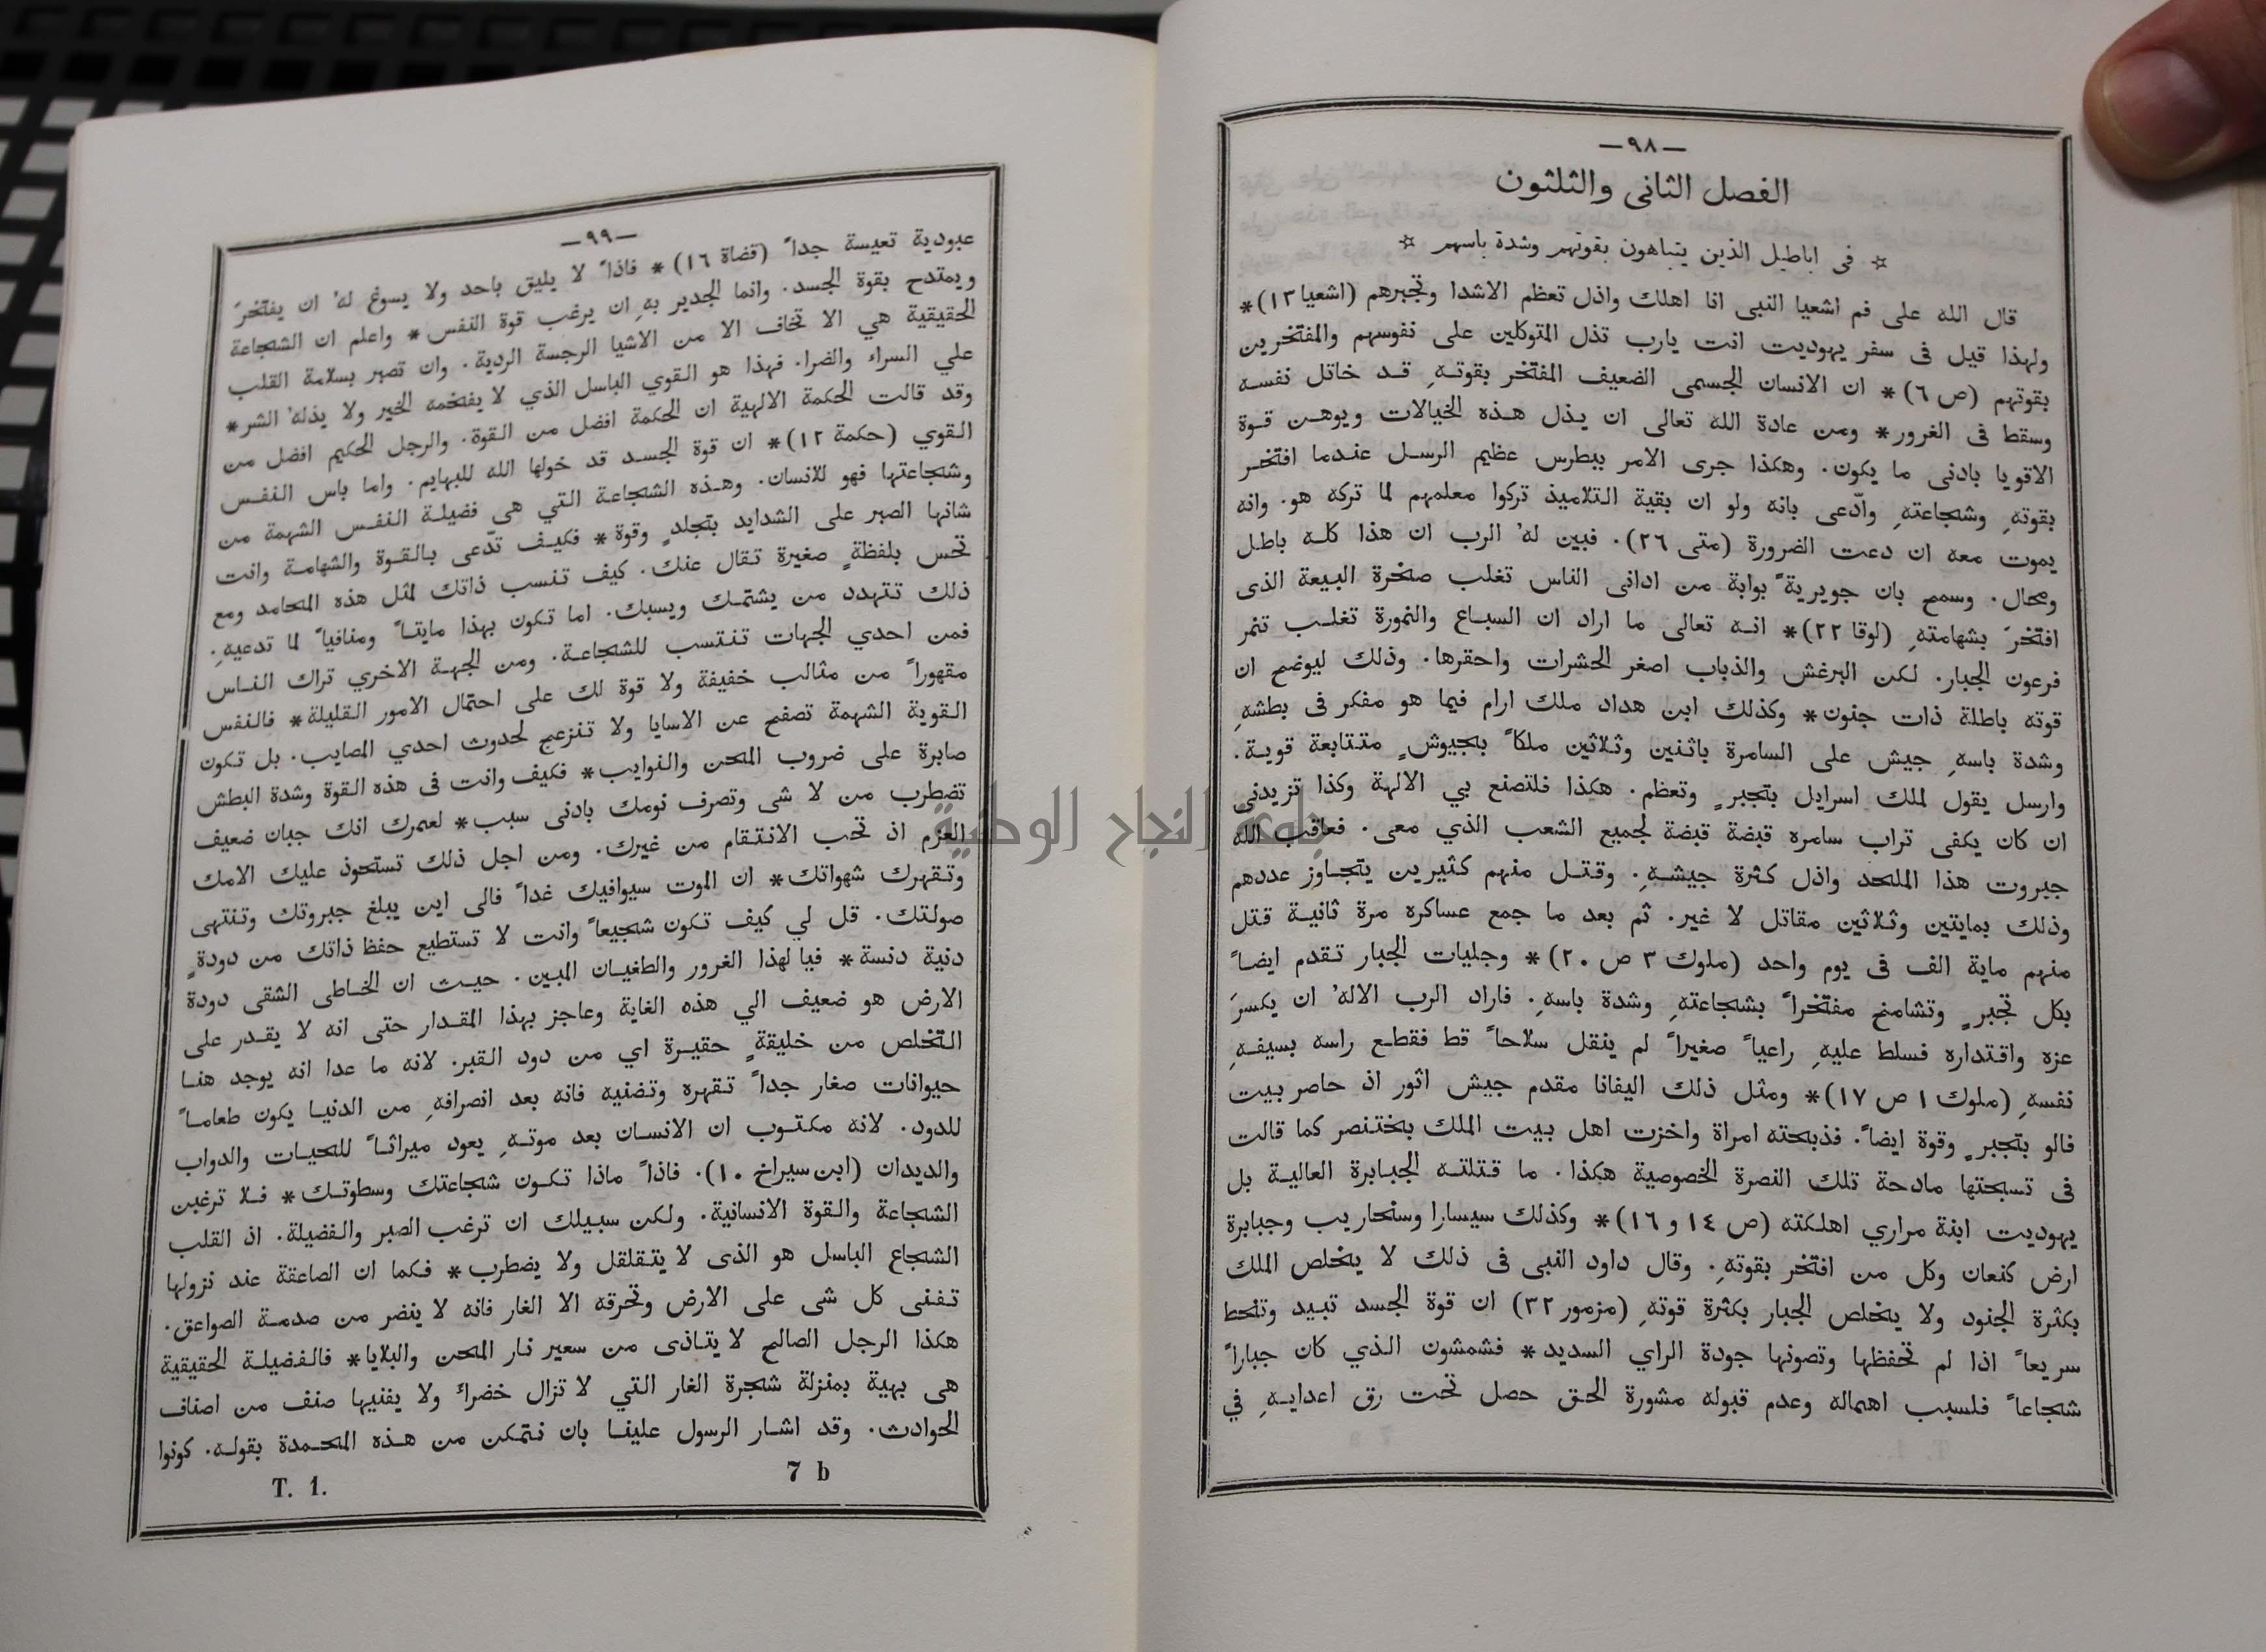 —٩٨—
الفصل الثانى والثلثون
☆ فى اباطيل الذين يتباهون بقوتهم وشدة باسهم ☆
قال الله على فم اشعيا النبى انا اهلك واذل تعظم الاشدا وتجبرهم (اشعيا ١٣)*
ولهذا قيل فى سفر يهوديت انت يارب تذل المتوكلين على نفوسهم والمفتخرين
بقوتهم (ص ٦)* ان الانسان الجسمى الضعيف المفتخر بقوتهِ قد خاتل نفسه
وسقط فى الغرور* ومن عادة الله تعالى ان يذل هذه الخيالات ويوهن قوة
الاقويا بادنى ما يكون. وهكذا جرى الامر ببطرس عظيم الرسل عندما افتخر
بقوتهِ وشجاعتهِ وادّعى بانه ولو ان بقية التلاميذ تركوا معلمهم لما تركه هو. وانه
يموت معه ان دعت الضرورة (متى ٢٦). فبين لهُ الرب ان هذا كله باطل
ومحال. وسمح بان جويريةً بوابة من ادانى الناس تغلب صخرة البيعة الذى
افتخرَ بشهامتهِ (لوقا ٢٢)* انه تعالى ما اراد ان السباع والنمورة تغلب تنمر
فرعون الجبار. لكن البرغش والذباب اصغر الحشرات واحقرها. وذلك ليوضح ان
قوته باطلة ذات جنون* وكذلك ابن هداد ملك ارام فيما هو مفكر فى بطشهِ
وشدة باسهِ جيش على السامرة باثنين وثلاثين ملكاً بجيوشٍ متتابعة قوية.
وارسل يقول لملك اسرايل بتجبرٍ وتعظم. هكذا فلتصنع بي الالهة وكذا تزيدنى
ان كان يكفى تراب سامره قبضة قبضة لجميع الشعب الذي معى. فعاقب الله
جبروت هذا الملحد واذل كثرة جيشهِ. وقتل منهم كثيرين يتجاوز عددهم
وذلك بمايتين وثلاثين مقاتل لا غير. ثم بعد ما جمع عساكره مرة ثانية قتل
منهم ماية الف فى يوم واحد (ملوك ٣ ص ٢٠)* وجليات الجبار تقدم ايضاً
بكل تجبرٍ وتشامخ مفتخراً بشجاعتهِ وشدة باسهِ. فاراد الرب الالهُ ان يكسرَ
عزه واقتداره فسلط عليهِ راعياً صغيراً لم ينقل سلاحاً قط فقطع راسه بسيفهِ
نفسهِ (ملوك ١ ص ١٧)* ومثل ذلك اليفانا مقدم جيش اثور اذ حاصر بيت
فالو بتجبرٍ وقوة ايضاً. فذبحته امراة واخزت اهل بيت الملك بختنصر كما قالت
فى تسبحتها مادحة تلك النصرة الخصوصية هكذا. ما قتلته الجبابرة العالية بل
يهوديت ابنة مراري اهلكته (ص ١٤ و ١٦)* وكذلك سيسارا وسنحاريب وجبابرة
ارض كنعان وكل من افتخر بقوتهِ. وقال داود النبى فى ذلك لا يخلص الملك
بكثرة الجنود ولا يخلص الجبار بكثرة قوتهِ (مزمور ٣٢) ان قوة الجسد تبيد وتنحط
سريعاً اذا لم تحفظها وتصونها جودة الراي السديد* فشمشون الذي كان جباراً
شجاعاً فلسبب اهماله وعدم قبوله مشورة الحق حصل تحت رق اعدايهِ في
—٩٩—
عبودية تعيسة جداً (قضاة ١٦)* فاذاً لا يليق باحد ولا يسوغ لهُ ان يفتخرَ
ويمتدح بقوة الجسد. وانما الجدير بهِ ان يرغب قوة النفس* واعلم ان الشجاعة
الحقيقية هي الا تخاف الا من الاشيا الرجسة الردية. وان تصبر بسلامة القلب
علي السراء والضرا. فهذا هو القوي الباسل الذي لا يفخمه الخير ولا يذلهُ الشر*
وقد قالت الحكمة الالهية ان الحكمة افضل من القوة. والرجل الحكيم افضل من
القوي (حكمة ١٢)* ان قوة الجسد قد خولها الله للبهايم. واما باس النفس
وشجاعتها فهو للانسان. وهذه الشجاعة التي هى فضيلة النفس الشهمة من
شانها الصبر على الشدايد بتجلدٍ وقوة* فكيف تدّعى بالقوة والشهامة وانت
تحس بلفظةٍ صغيرة تقال عنك. كيف تنسب ذاتك لمثل هذه المحامد ومع
ذلك تتهدد من يشتمك ويسبك. اما تكون بهذا مايتاً ومنافياً لما تدعيهِ.
فمن احدي الجهات تنتسب للشجاعة. ومن الجهة الاخري تراك الناس
مقهوراً من مثالب خفيفة ولا قوة لك على احتمال الامور القليلة* فالنفس
القوية الشهمة تصفح عن الاسايا ولا تنزعج لحدوث احدي المصايب. بل تكون
صابرة على ضروب المحن والنوايب* فكيف وانت فى هذه القوة وشدة البطش
تضطرب من لا شى وتصرف نومك بادنى سبب* لعمرك انك جبان ضعيف
العزم اذ تحب الانتقام من غيرك. ومن اجل ذلك تستحوذ عليك الامك
وتقهرك شهواتك* ان الموت سيوافيك غداً فالى اين يبلغ جبروتك وتنتهى
صولتك. قل لي كيف تكون شجيعاً وانت لا تستطيع حفظ ذاتك من دودةٍ
دنية دنسة* فيا لهذا الغرور والطغيان المبين. حيث ان الخاطى الشقى دودة
الارض هو ضعيف الي هذه الغاية وعاجز بهذا المقدار حتى انه لا يقدر على
التخلص من خليقةٍ حقيرة اي من دود القبر. لانه ما عدا انه يوجد هنا
حيوانات صغار جداً تقهره وتضنيه فانه بعد انصرافهِ من الدنيا يكون طعاماً
للدود. لانه مكتوب ان الانسان بعد موتهِ يعود ميراثاً للحيات والدواب
والديدان (ابن سيراخ ١٠). فاذاً ماذا تكون شجاعتك وسطوتك* فلا ترغبن
الشجاعة والقوة الانسانية. ولكن سبيلك ان ترغب الصبر والفضيلة. اذ القلب
الشجاع الباسل هو الذى لا يتقلقل ولا يضطرب* فكما ان الصاعقة عند نزولها
تفنى كل شى على الارض وتحرقه الا الغار فانه لا ينضر من صدمة الصواعق.
هكذا الرجل الصالح لا يتاذى من سعير نار المحن والبلايا* فالفضيلة الحقيقية
هى بهية بمنزلة شجرة الغار التي لا تزال خضراء ولا يفنيها صنف من اصناف
الحوادث. وقد اشار الرسول علينا بان نتمكن من هذه المحمدة بقوله. كونوا
T. 1. 7 b
جامعة النجاح الوطنية